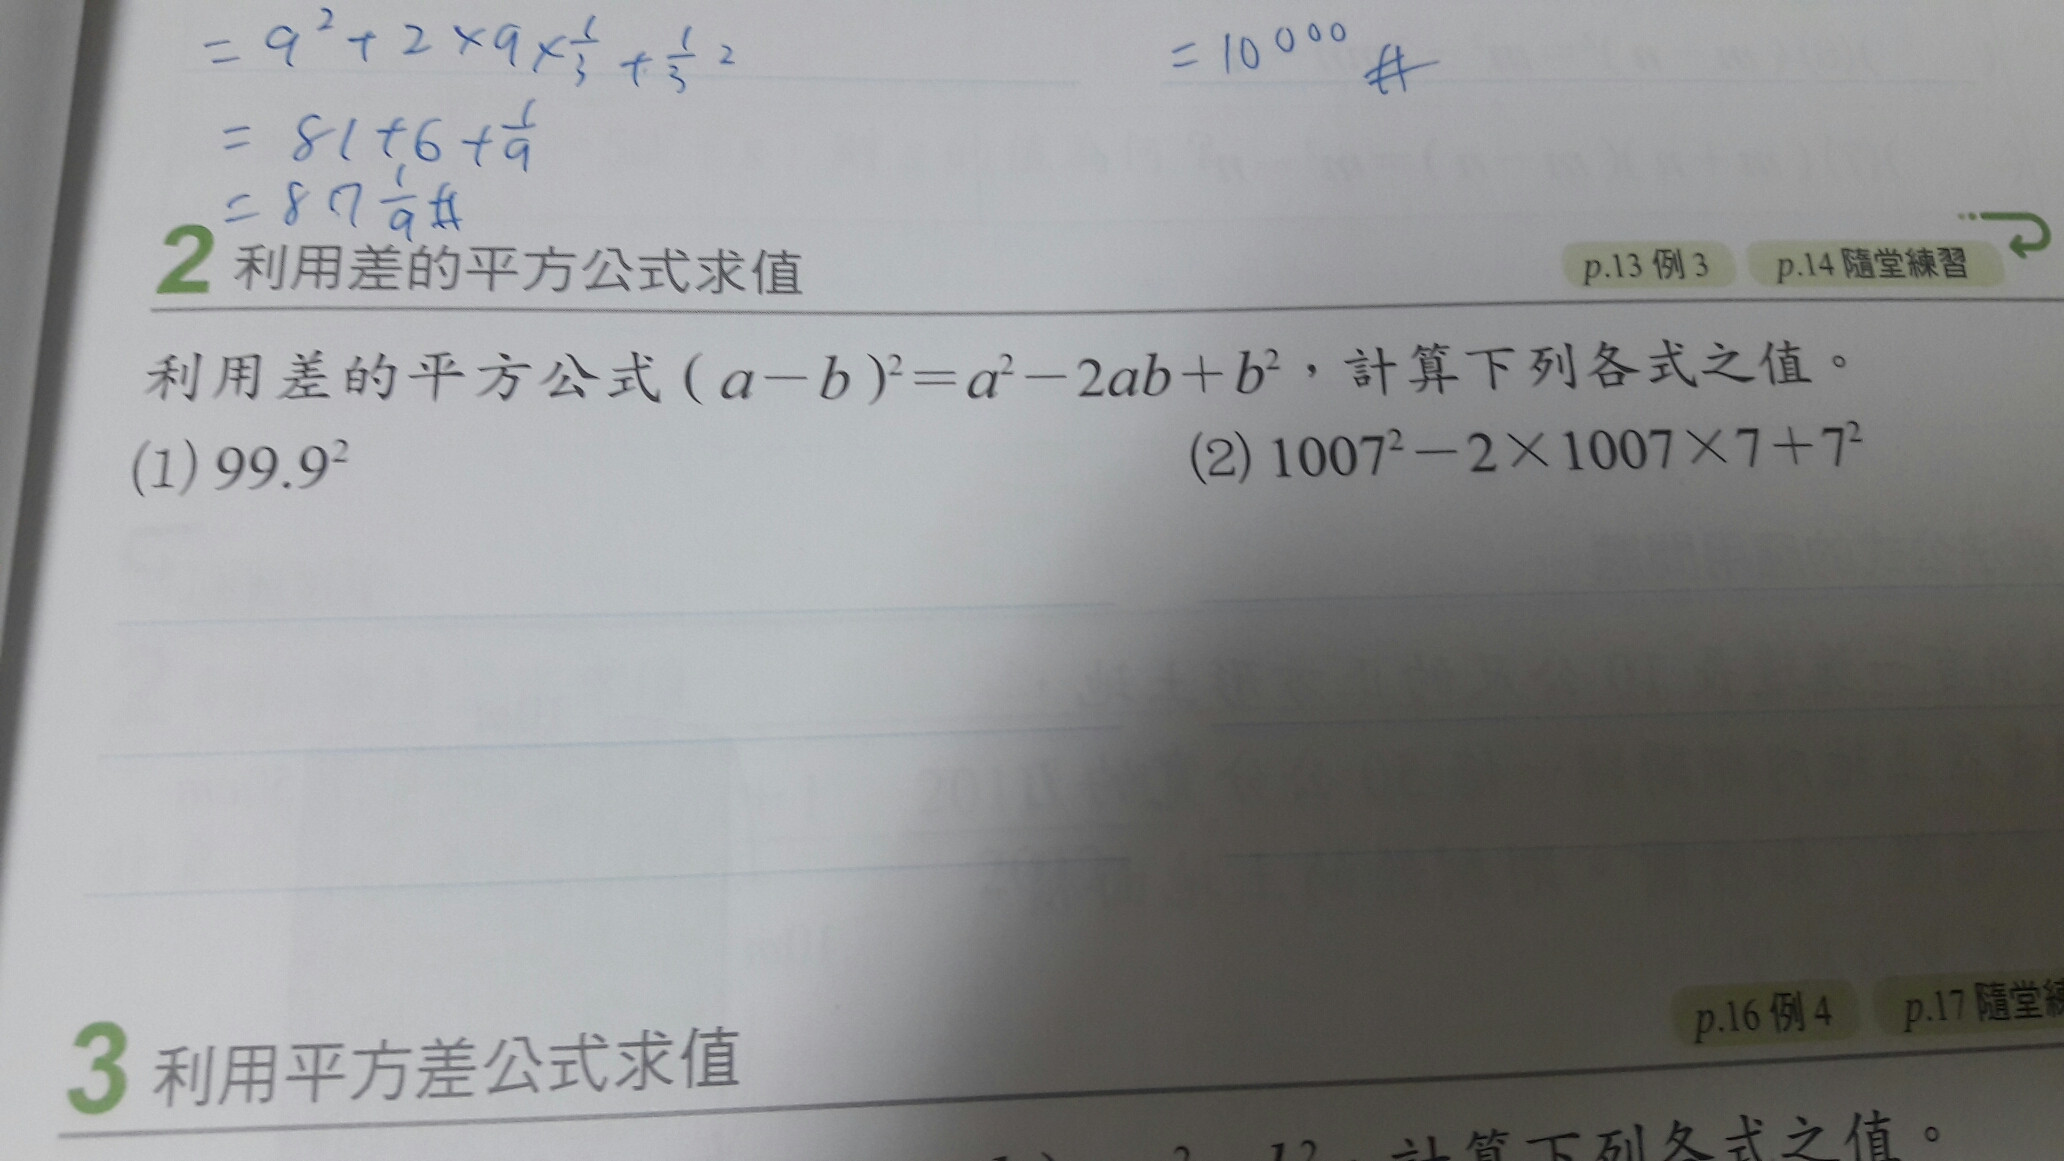 = 9² + 2 × 9 × 1/3 + 1/3 ²
= 10000 #
= 81 + 6 + 1/9
= 87 1/9 #
2 利用差的平方公式求值
p.13 例 3 p.14 隨堂練習
利用差的平方公式(a－b)²＝a²－2ab＋b²，計算下列各式之值。
(1) 99.9² (2) 1007²－2×1007×7＋7²
p.16 例 4 p.17 隨堂練
3 利用平方差公式求值
計算下列各式之值。